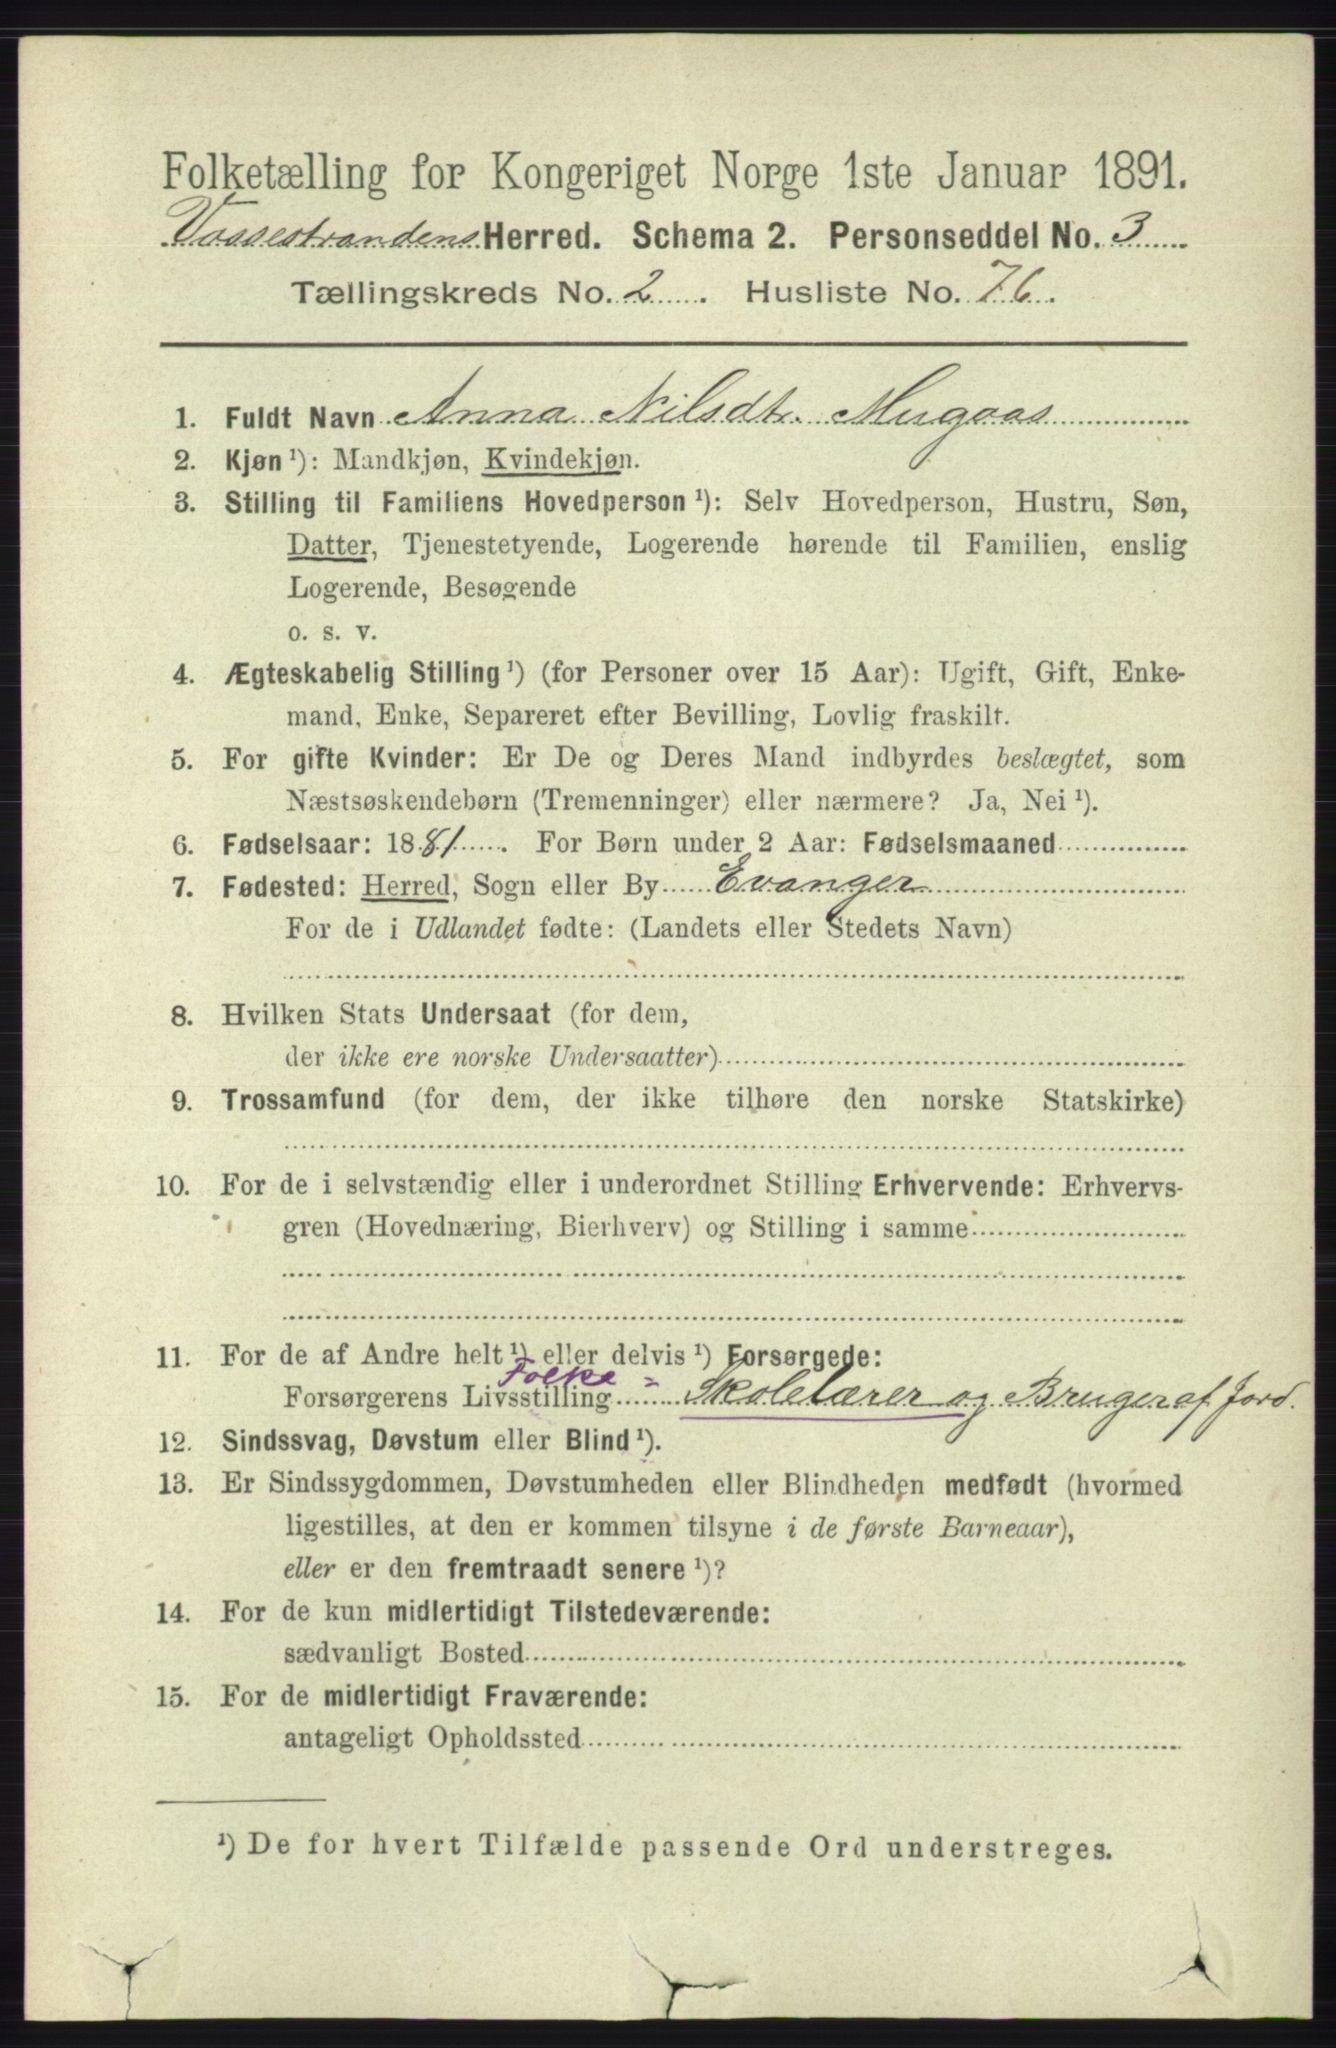 Folketælling for Kongeriget Norge 1ste Januar 1891.
Vossestrandens Herred. Schema 2. Personseddel No. 3
Tællingskreds No. 2. Husliste No. 76.
1. Fuldt Navn Anna Nilsdtr. Mugaas
2. Kjøn ¹): Mandkjøn, Kvindekjøn.
3. Stilling til Familiens Hovedperson ¹): Selv Hovedperson, Hustru, Søn,
Datter, Tjenestetyende, Logerende hørende til Familien, enslig
Logerende, Besøgende
o. s. v.
4. Ægteskabelig Stilling ¹) (for Personer over 15 Aar): Ugift, Gift, Enke-
mand, Enke, Separeret efter Bevilling, Lovlig fraskilt.
5. For gifte Kvinder: Er De og Deres Mand indbyrdes beslægtet, som
Næstsøskendebørn (Tremenninger) eller nærmere? Ja, Nei ¹).
6. Fødselsaar: 1881. For Børn under 2 Aar: Fødselsmaaned
7. Fødested: Herred, Sogn eller By Evanger
For de i Udlandet fødte: (Landets eller Stedets Navn)
8. Hvilken Stats Undersaat (for dem,
der ikke ere norske Undersaatter)
9. Trossamfund (for dem, der ikke tilhøre den norske Statskirke)
10. For de i selvstændig eller i underordnet Stilling Erhvervende: Erhvervs-
gren (Hovednæring, Bierhverv) og Stilling i samme
11. For de af Andre helt ¹) eller delvis ¹) Forsørgede:
Folke =
Forsørgerens Livsstilling Skolelærer og Bruger af Jord.
12. Sindssvag, Døvstum eller Blind ¹).
13. Er Sindssygdommen, Døvstumheden eller Blindheden medfødt (hvormed
ligestilles, at den er kommen tilsyne i de første Barneaar),
eller er den fremtraadt senere ¹)?
14. For de kun midlertidigt Tilstedeværende:
sædvanligt Bosted
15. For de midlertidigt Fraværende:
antageligt Opholdssted
¹) De for hvert Tilfælde passende Ord understreges.